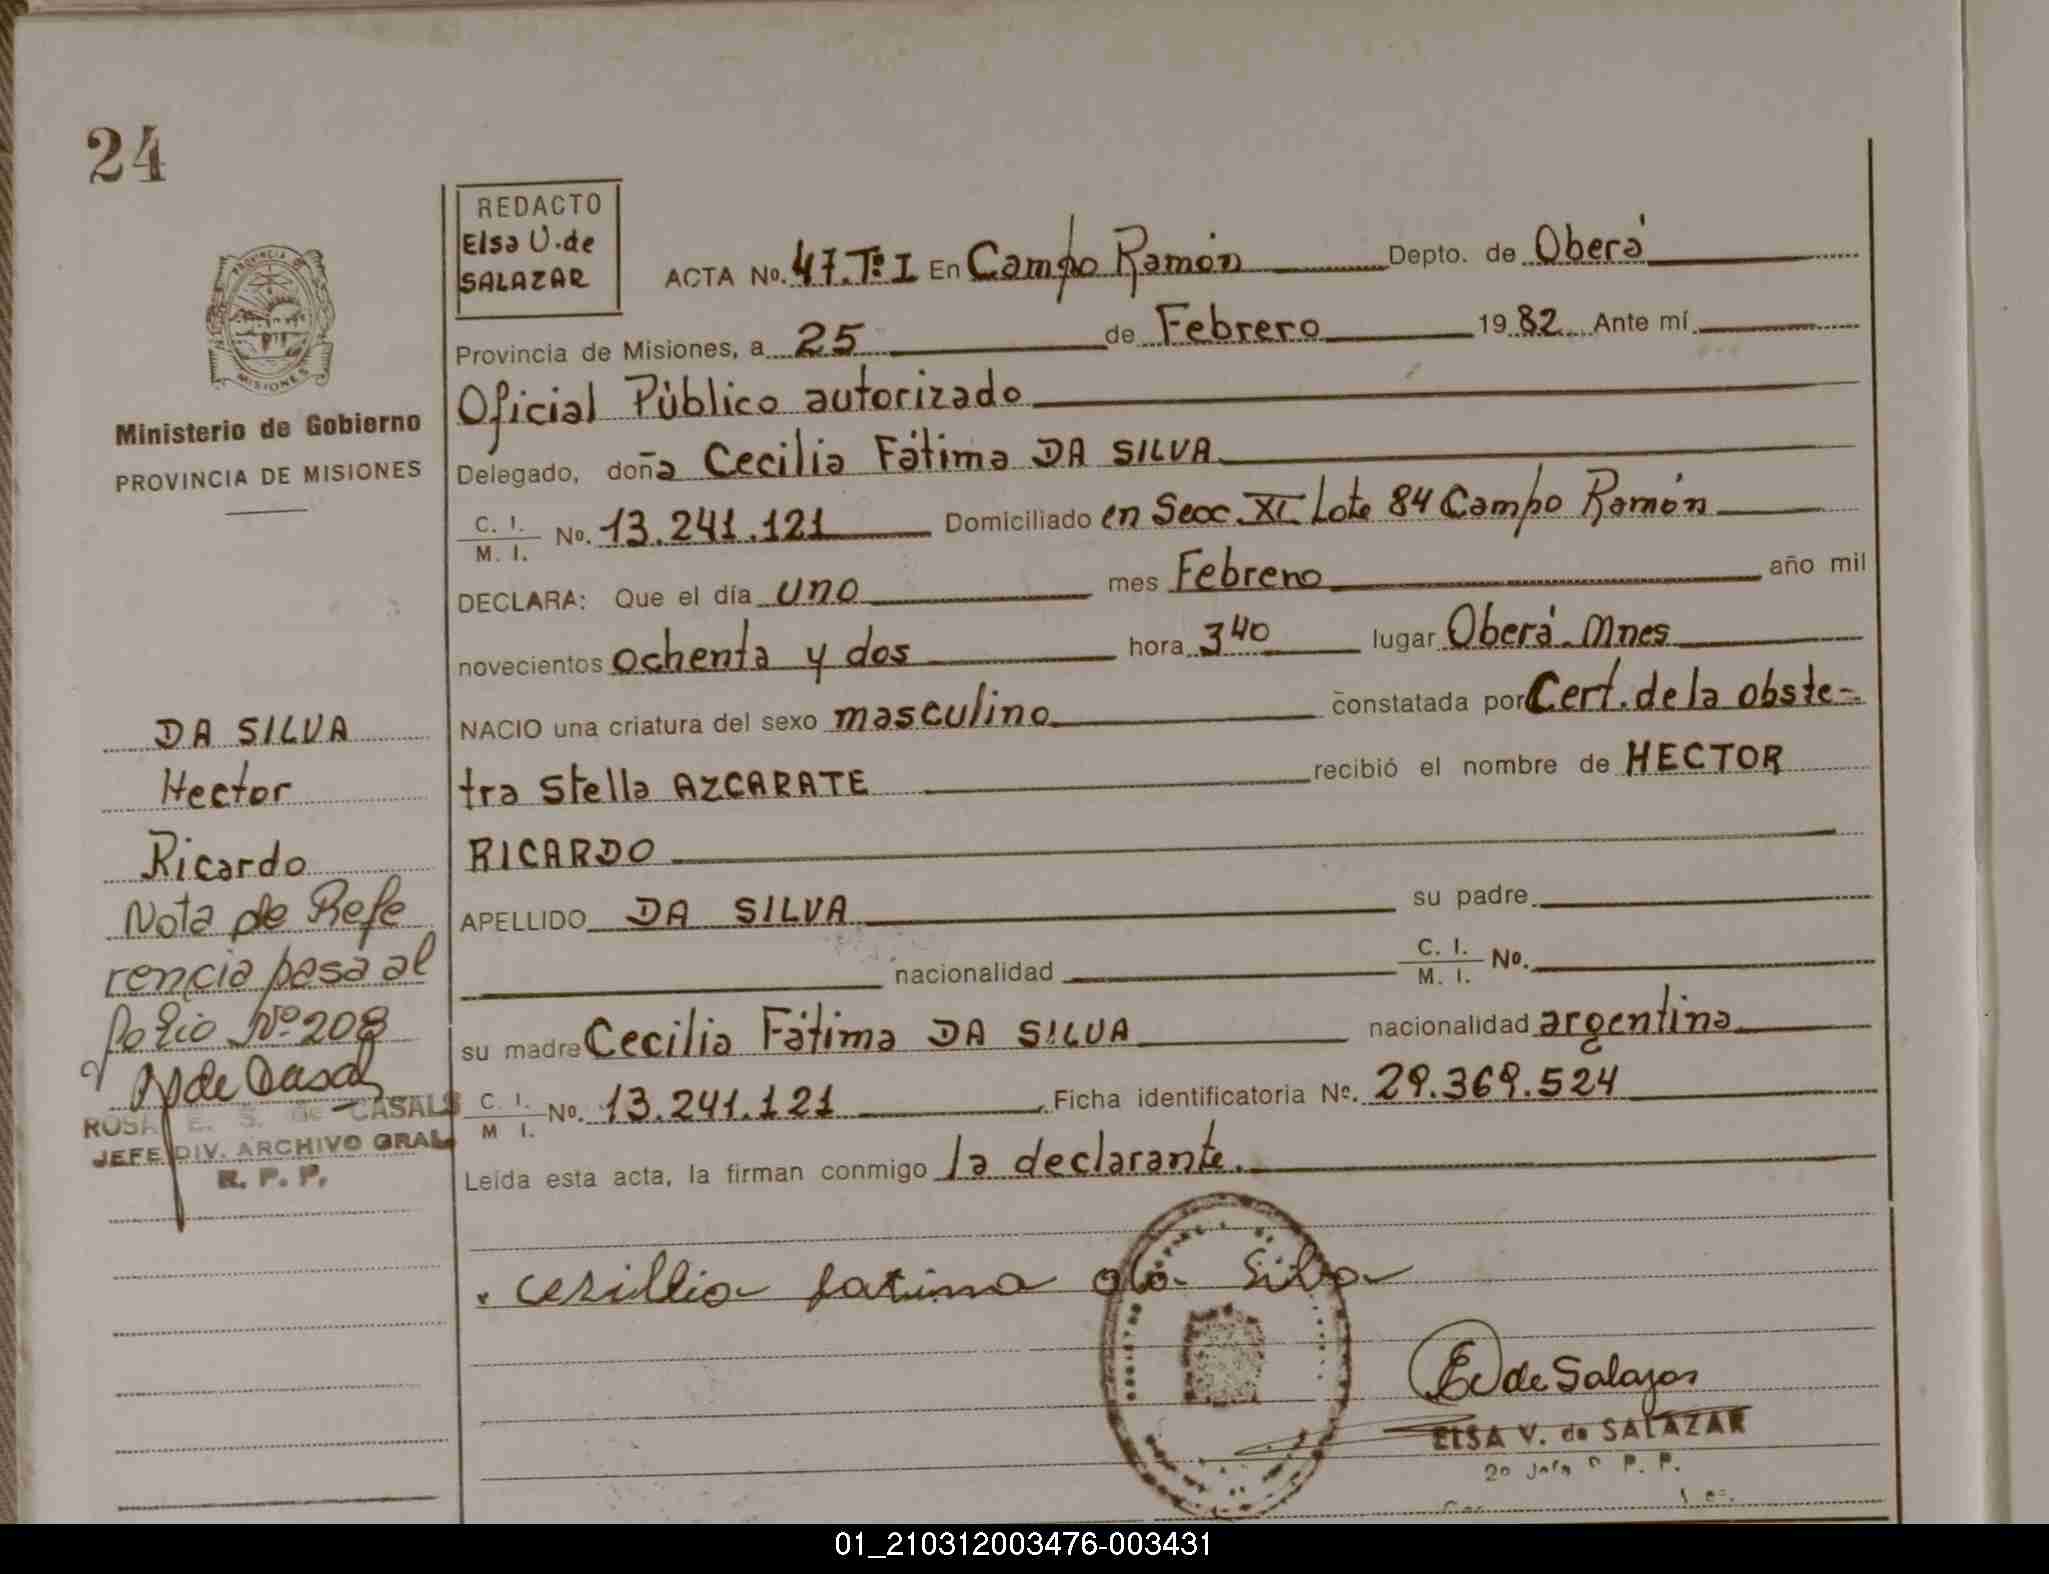 24
REDACTO
Elsa V. de
SALAZAR
ACTA No. 47.Tº I En Campo Ramón Depto. de Oberá
Provincia de Misiones, a 25 de Febrero 1982 Ante mí
Oficial Público autorizado
Delegado, doña Cecilia Fátima DA SILVA
C. I.
M. I. No. 13.241.121 Domiciliado en Secc. XI Lote 84 Campo Ramón
DECLARA: Que el día uno mes Febrero año mil
novecientos ochenta y dos hora 3 40 lugar Oberá Mnes
NACIO una criatura del sexo masculino constatada por Cert. de la obste-
tra Stella AZCARATE recibió el nombre de HECTOR
RICARDO
APELLIDO DA SILVA su padre
nacionalidad C. I.
M. I. No.
su madre Cecilia Fátima DA SILVA nacionalidad argentina
C. I.
M I. No. 13.241.121 Ficha identificatoria No. 29.369.524
Leída esta acta, la firman conmigo la declarante.
cesillia fatima da Silva
E V de Salazar
ELSA V. de SALAZAR
PROVINCIA DE
MISIONES
Ministerio de Gobierno
PROVINCIA DE MISIONES
DA SILVA
Hector
Ricardo
Nota de Refe
rencia pasa al
folio Nº 208
de Casals
ROSA E. S. de CASALS
JEFE DIV. ARCHIVO GRAL.
R. P. P.
01_210312003476-003431